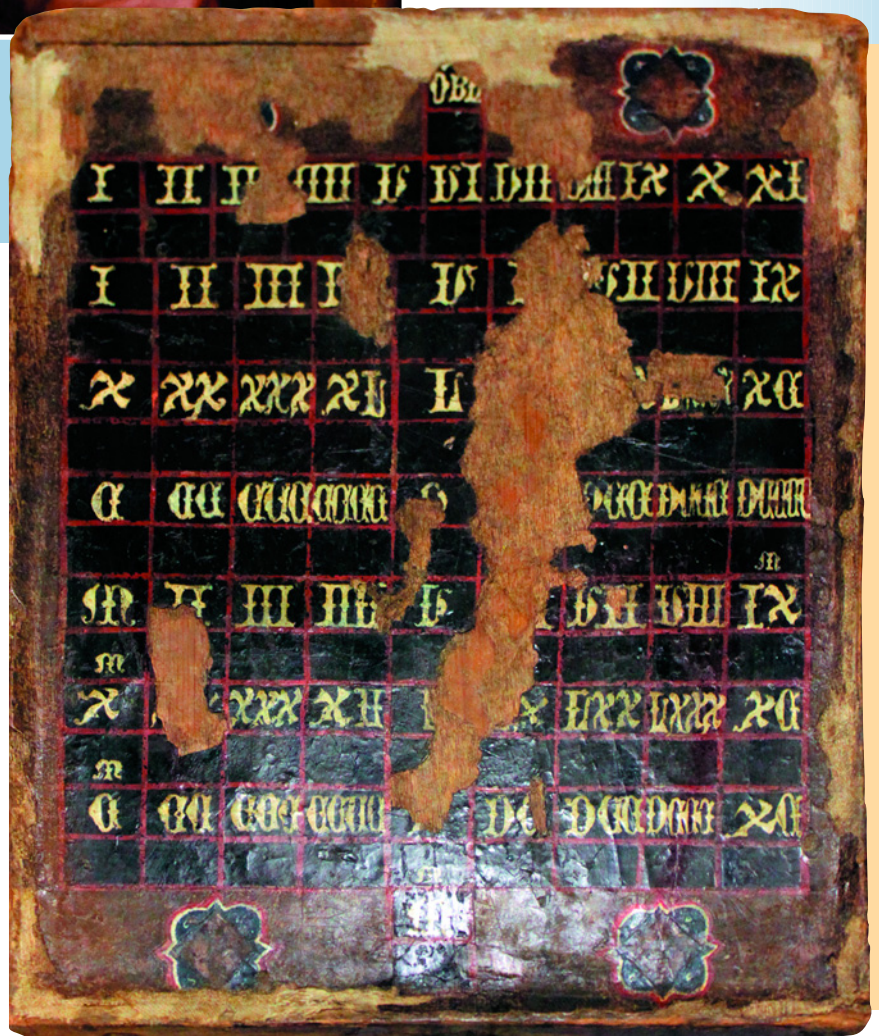 OBL
I II IIII V VI VII VIII IX X XI
I II III V VII VIII IX
X XX XXX XL L XC
C CC CCC CCCC DCC DCCC DCCCC
M
M II III IIII V VII VIII IX
M
X XXX XL LXX LXXX XC
M
C CC CCC CCCC DC DCC DCCC XC